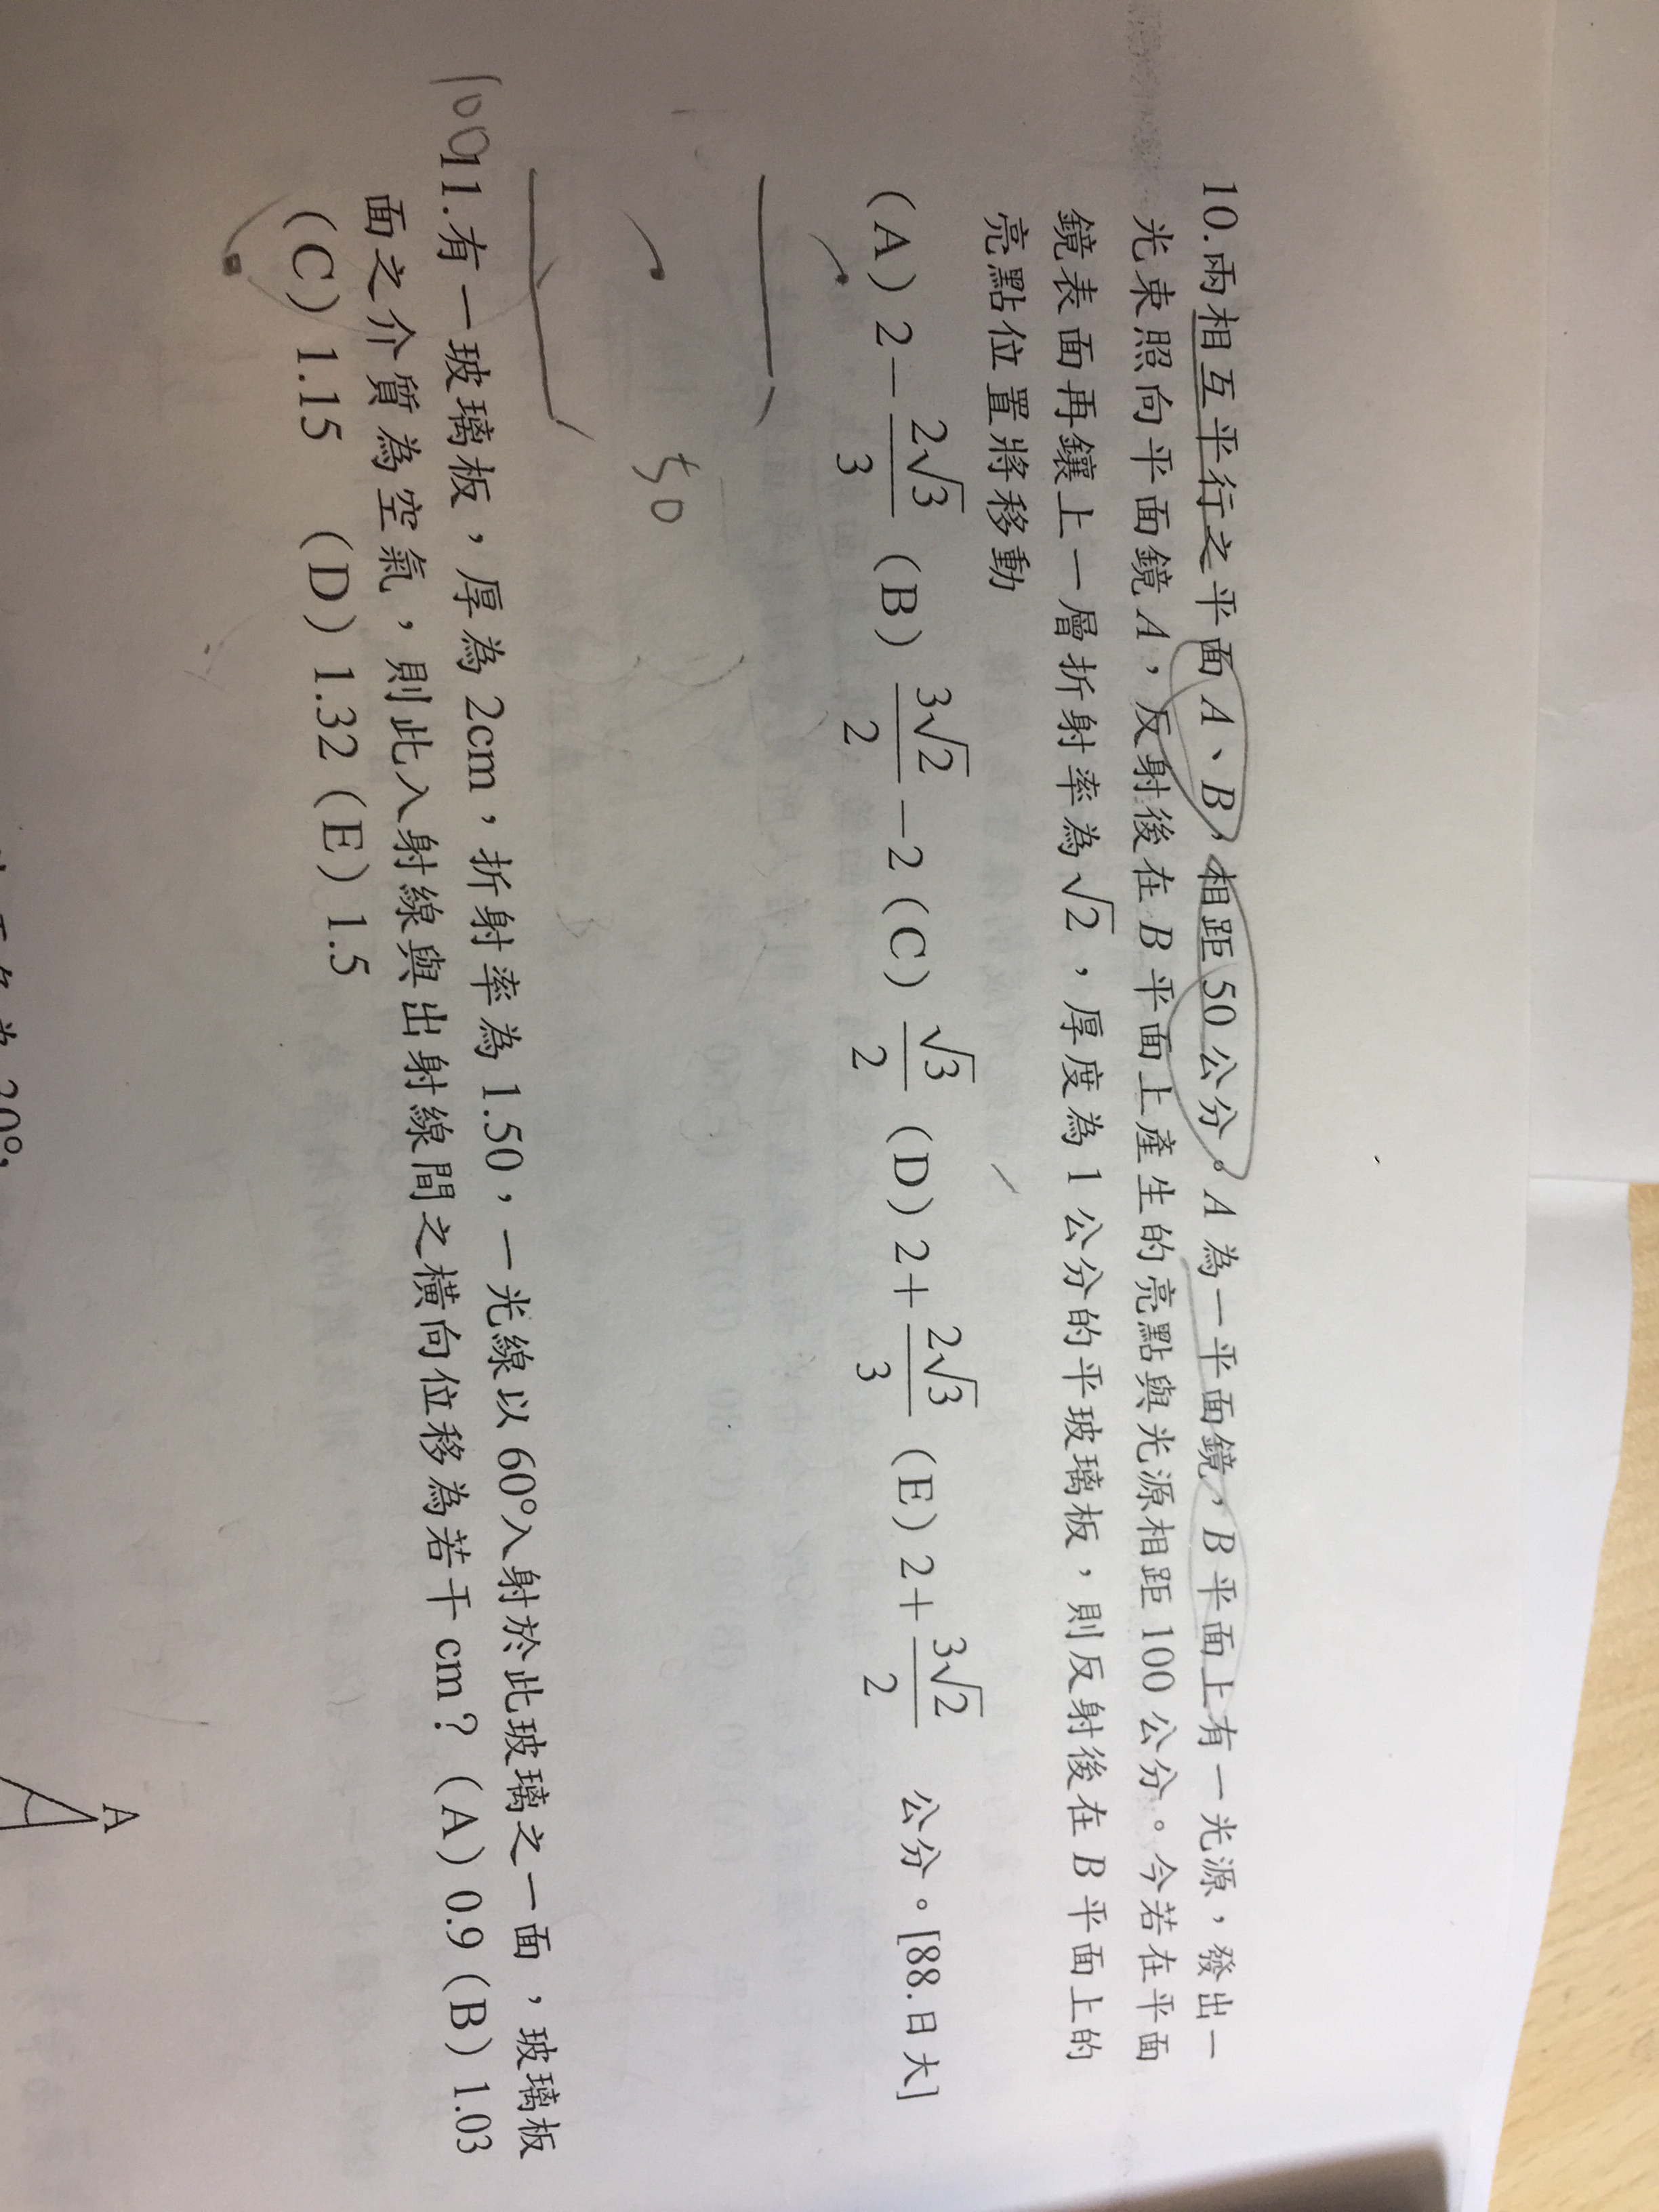 10.兩相互平行之平面 A、B，相距 50 公分。A 為一平面鏡，B 平面上有一光源，發出一
光束照向平面鏡 A，反射後在 B 平面上產生的亮點與光源相距 100 公分。今若在平面
鏡表面再鑲上一層折射率為 √2，厚度為 1 公分的平玻璃板，則反射後在 B 平面上的
亮點位置將移動
(A) 2－2√3/3 (B) 3√2/2－2 (C) √3/2 (D) 2＋2√3/3 (E) 2＋3√2/2 公分。[88.日大]
50
100
11.有一玻璃板，厚為 2cm，折射率為 1.50，一光線以 60°入射於此玻璃之一面，玻璃板
面之介質為空氣，則此入射線與出射線間之橫向位移為若干 cm？(A) 0.9 (B) 1.03
(C) 1.15 (D) 1.32 (E) 1.5
A